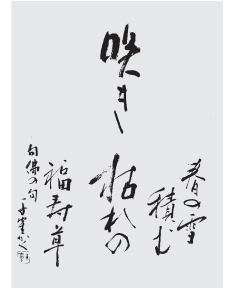 春の雪
積む
咲き枯れの
福寿草
句佛の句